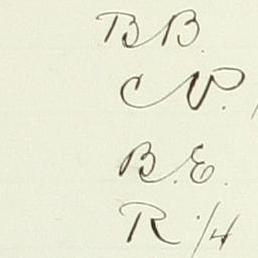 B B.
C V.
B. E.
R. H